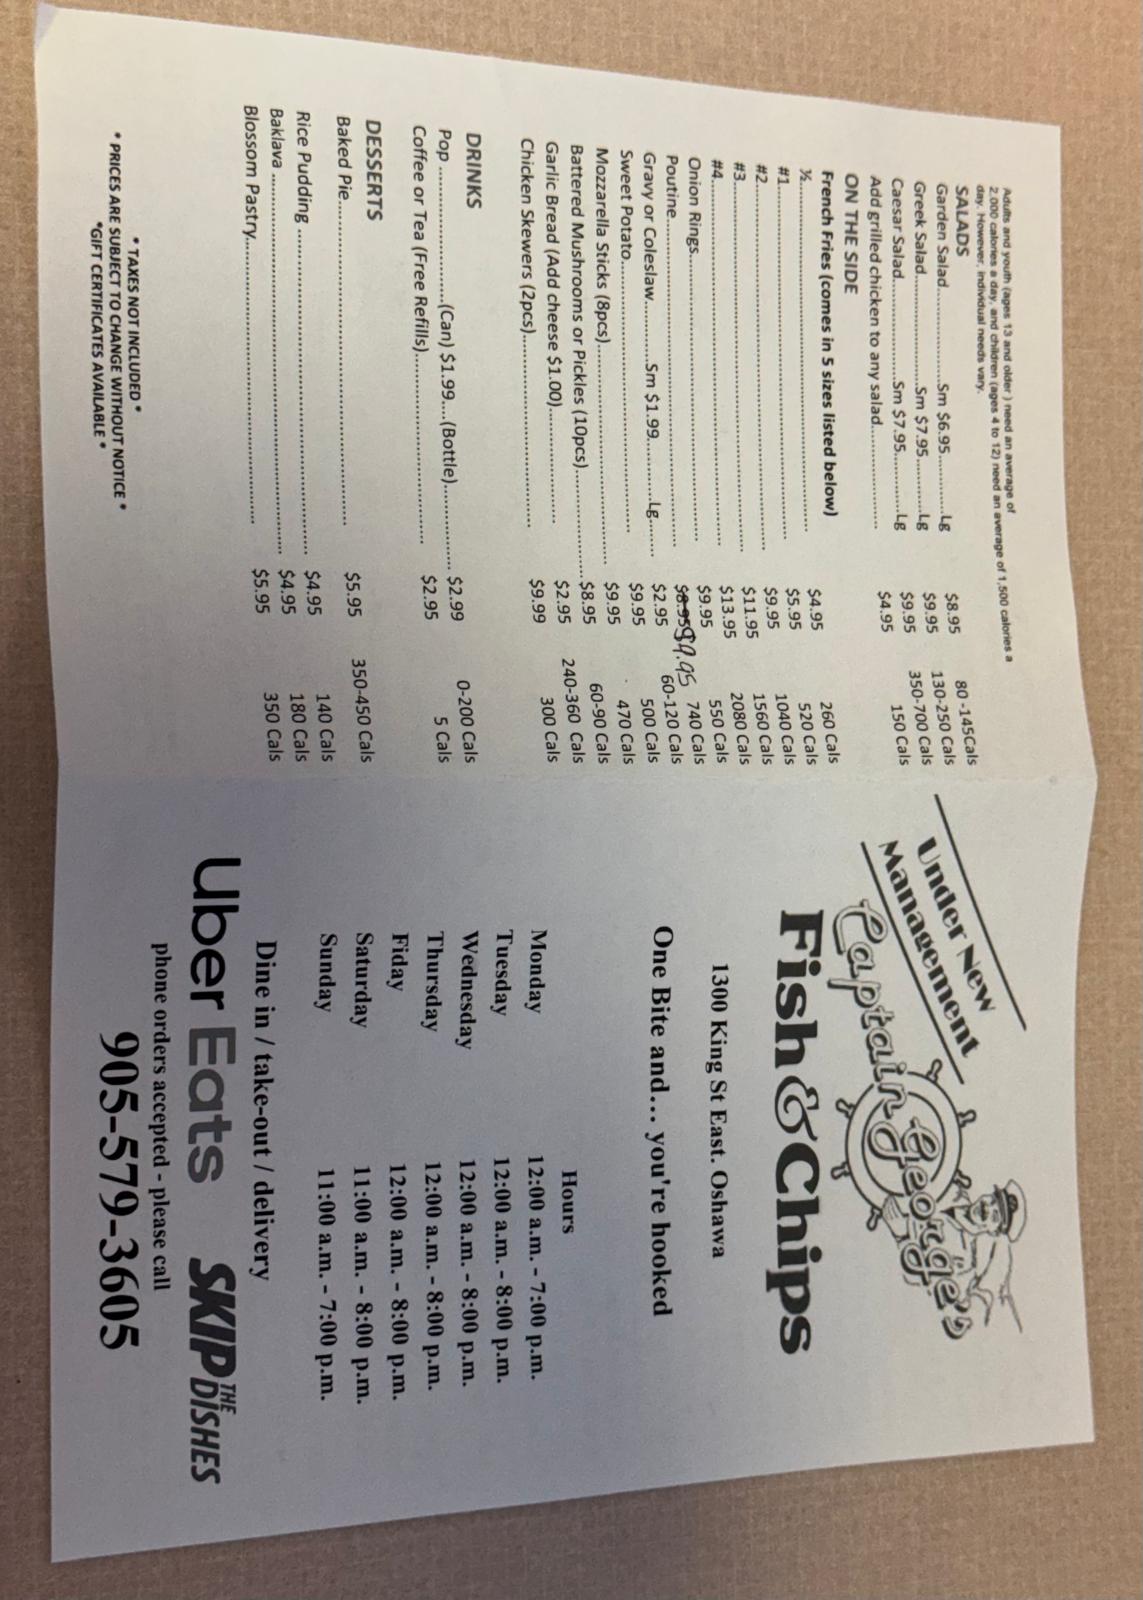 Adults and youth (ages 13 and older ) need an average of
2,000 calories a day, and children (ages 4 to 12) need an average of 1,500 calories a
day. However, individual needs vary.
SALADS
Garden Salad....................Sm $6.95..........Lg $8.95 80 -145Cals
Greek Salad.......................Sm $7.95..........Lg $9.95 130-250 Cals
Caesar Salad.....................Sm $7.95..........Lg $9.95 350-700 Cals
Add grilled chicken to any salad..................... $4.95 150 Cals
ON THE SIDE
French Fries (comes in 5 sizes listed below)
½............................................................... $4.95 260 Cals
#1............................................................. $5.95 520 Cals
#2............................................................. $9.95 1040 Cals
#3............................................................. $11.95 1560 Cals
#4............................................................. $13.95 2080 Cals
Onion Rings............................................... $9.95 550 Cals
Poutine..................................................... $8.95 $9.95 740 Cals
Gravy or Coleslaw............Sm $1.99............Lg........ $2.95 60-120 Cals
Sweet Potato............................................. $9.95 500 Cals
Mozzarella Sticks (8pcs)............................... $9.95 470 Cals
Battered Mushrooms or Pickles (10pcs)................ $8.95 60-90 Cals
Garlic Bread (Add cheese $1.00)..................... $2.95 240-360 Cals
Chicken Skewers (2pcs)................................ $9.99 300 Cals
DRINKS
Pop ......................(Can) $1.99....(Bottle)............ $2.99 0-200 Cals
Coffee or Tea (Free Refills)............................ $2.95 5 Cals
DESSERTS
Baked Pie.................................................. $5.95 350-450 Cals
Rice Pudding .............................................. $4.95 140 Cals
Baklava ..................................................... $4.95 180 Cals
Blossom Pastry............................................ $5.95 350 Cals
* TAXES NOT INCLUDED *
* PRICES ARE SUBJECT TO CHANGE WITHOUT NOTICE *
*GIFT CERTIFICATES AVAILABLE *
Under New
Management
Captain George's
Fish&Chips
1300 King St East. Oshawa
One Bite and... you're hooked
Hours
Monday 12:00 a.m. - 7:00 p.m.
Tuesday 12:00 a.m. - 8:00 p.m.
Wednesday 12:00 a.m. - 8:00 p.m.
Thursday 12:00 a.m. - 8:00 p.m.
Fiday 12:00 a.m. - 8:00 p.m.
Saturday 11:00 a.m. - 8:00 p.m.
Sunday 11:00 a.m. - 7:00 p.m.
Dine in / take-out / delivery
Uber Eats SKIP THE DISHES
phone orders accepted - please call
905-579-3605